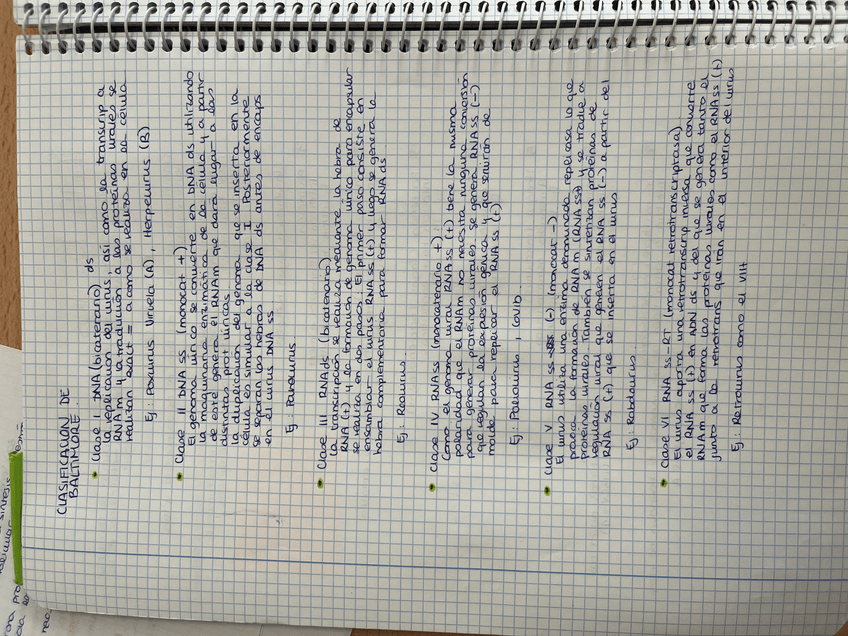 CLASIFICACIÓN DE
BALTIMORE.
• Clase I DNA (bicatenario) ds
La replicación del virus, así como la transcrip a
RNAm y la traducción a las proteínas virales se
realizan exact = a como se realiza en la célula
Ej: Poxvirus Viruela (A), Herpesvirus (B)
• Clase II DNA ss (monocat +)
El genoma único se convierte en DNA ds utilizando
la maquinaria enzimática de la célula y a partir
de este genera el RNAm que dará lugar a las
distintas prot víricas.
La duplicación del genoma que se inserta en la
célula es similar a la clase I. Posteriormente
se separan las hebras de DNA ds antes de encaps
en el virus DNA ss.
Ej: Parvovirus
• Clase III RNA ds (bicatenario)
La transcripción se realiza mediante la hebra de
RNA (+) y la formación de genoma único para encapsular
se realiza en dos pasos. El primer paso consiste en
ensamblar el virus RNA ss (+) y luego se genera la
hebra complementaria para formar RNA ds
Ej: Reovirus.
• Clase IV RNA ss (monocatenario +)
Como el genoma viral RNA ss (+) tiene la misma
polaridad que el RNAm no necesita ninguna conversión
para generar proteínas virales. Se genera RNA ss (-)
que regulan la expresión génica y que servirán de
molde para replicar el RNA ss (+)
Ej: Poliovirus, COVID.
• Clase V RNA ss (-) (monocat -)
El virus utiliza una enzima denominada replicasa lo que
provoca la formación de RNAm (RNA ss+) y se traduce a
proteínas virales. También se sintetizan proteínas de
regulación viral que generen el RNA ss (-) a partir del
RNA ss (+) que se inserta en el virus
Ej: Rabdovirus.
• Clase VI RNA ss-RT (monocat retrotranscriptasa)
El virus aporta una retrotranscrip inversa que convierte
el RNA ss (+) en ADN ds y del que se genera tanto el
RNAm que forma las proteínas virales como el RNA ss (+)
junto a la retrotrans que irán en el interior del virus
Ej: Retrovirus como el VIH